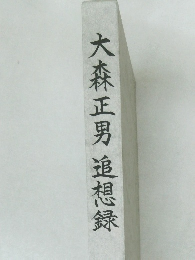 大森正男追想録